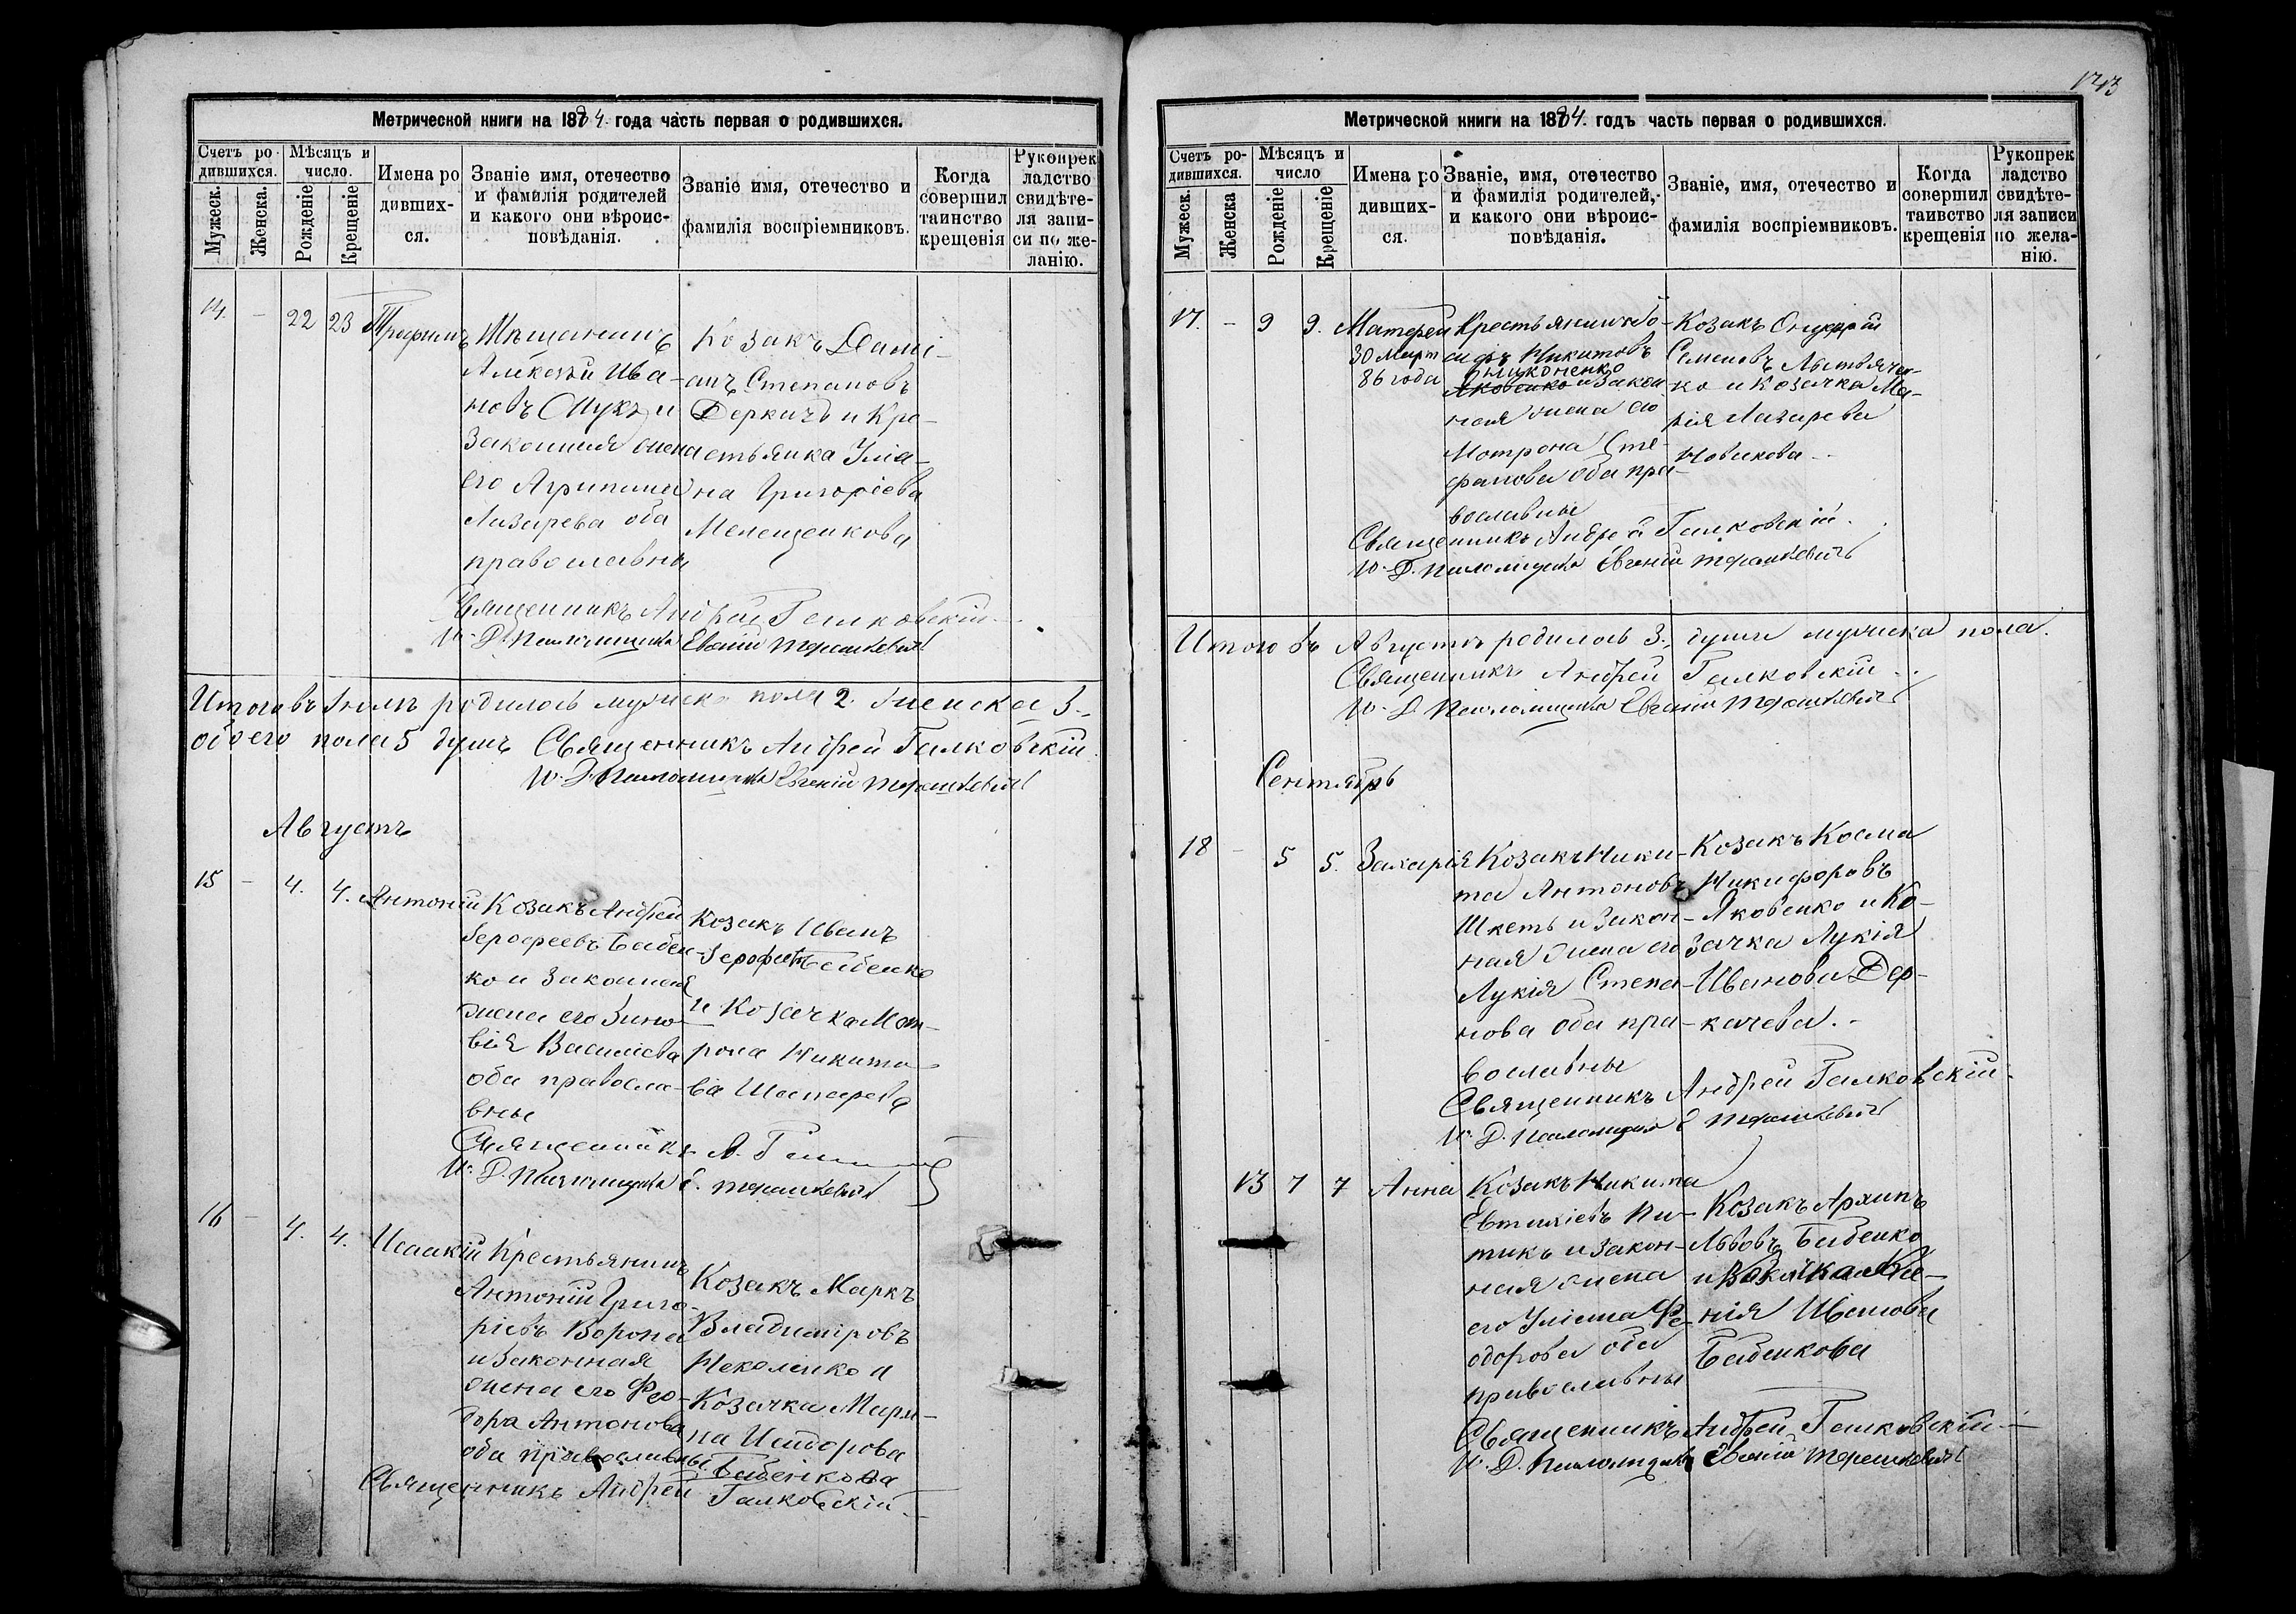 Метрической книги на 1884. года часть первая о родившихся.
Счетъ ро-
дившихся.
Мѣсяцъ и
число.
Мужеск.
Женска.
Рожденіе
Крещеніе
Имена ро
дивших-
ся.
Званіе имя, отечество
и фамилія родителей
и какого они вѣроис-
повѣданія.
Званіе имя, отечество и
фамилія воспріемниковъ.
Когда
совершил
таинство
крещенія
Рукоприк
ладство
свидѣте-
ля запи-
си по же-
ланію.
14. - 22 23 Трофимъ
Мѣщанинъ
Алексѣй Ива-
новъ Мукъ и
Законная жена
его Агрипина
Лазарева оба
православны
Козакъ Дамі-
анъ Степановъ
Деркачъ и Кре-
стьянка Уліа-
на Григоріева
Мелещенкова
Священникъ Андрей Галковскій
И. Д. Псаломщика Евгеній Терешкевичъ
Итого въ Іюлѣ родилось мужеска пола 2. женска 3.
обоего пола 5 душъ Священникъ Андрей Галковскій
И. Д. Псаломщика Евгеній Терешкевичъ
Августъ
15 - 4. 4. Антоній
Козакъ Андрей
Іерофеевъ Бабен-
ко и Законная
жена его Зино-
вія Василіева
оба правосла-
вны
Козакъ Иванъ
Іерофеевъ Бабенко
и Козачка Мат-
рона Никити-
ва
Священникъ А.
И. Д. Псаломщика Е. Терешкевичъ
16 - 4. 4. Исаакій
Крестьянинъ
Антоній Григо-
ріевъ Ворона
и Законная
жена его Фео-
дора Антонова
оба православны
Козакъ Маркъ
Владиміровъ
и
Козачка Мари-
на Исидорова
Бабенкова
Священникъ Андрей Галковскій
143
Метрической книги на 1884. годъ часть первая о родившихся.
Счетъ ро-
дившихся.
Мѣсяцъ и
число
Мужеск.
Женска
Рожденіе
Крещеніе
Имена ро
дивших-
ся.
Званіе, имя, отечество
и фамилія родителей,
и какого они вѣроис-
повѣданія.
Званіе, имя, отечество и
фамилія воспріемниковъ.
Когда
совершил
таивство
крещенія
Рукопрек
ладство
свидѣте-
ля записи
по жела-
нію.
17. - 9 9. Матфей
30 Март
86 года
Крестьянинъ Іо-
сифъ Никитовъ
Яковенко и Закон
ная жена его
Мотрона Сте-
фанова оба пра-
вославны
Козакъ Онуфрій
Семеновъ
ко и Козачка Ма-
рія Лазарева
Новикова
Священникъ Андрей Галковскій.
И. Д. Псаломщика Евгеній Терешкевичъ
Итого въ Августѣ родилось 3. души мужска пола.
Священникъ Андрей Галковскій
И. Д. Псаломщика Евгеній Терешкевичъ
Сентябрь
18 - 5 5. Захарія
Козакъ Ники-
та Антоновъ
Шкеть и Закон-
ная жена его
Лукія Степа-
нова оба пра-
вославны
Козакъ Косма
Никифоровъ
Яковенко и Ко-
зачка Лукія
Иванова Дер-
качева.
Священникъ Андрей Галковскій
И. Д. Псаломщика Е Терешкевичъ
13 7 7 Анна
Козакъ Никита
Евтихіевъ Пи-
тикъ и Закон-
ная жена
его Уліана Фе-
одорова оба
православны
Козакъ Архипъ
Львовъ Бабенко
и Козачка Ксе-
нія Иванова
Бабенкова
Священникъ Андрей Галковскій
И. Д. Псаломщика Евгеній Терешкевичъ